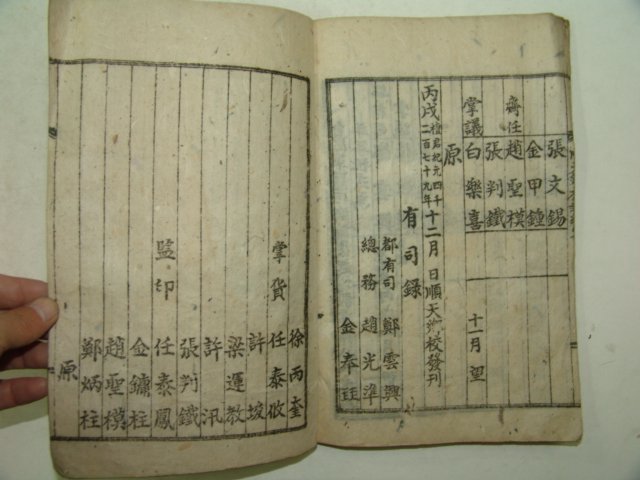 張文錫
金甲鍾
齊任 趙聖模
張判鐵
掌議 白樂喜
十一月 望
原
丙戌檀君紀元四千二百七十九年十二月 日順天鄉校發刊
有司錄
都有司 鄭雲興
總務 趙光準
金奉珏
徐丙奎
掌貨 任泰攸
許埈
梁運教
許汛
張判鐵
監印 任泰鳳
金鏞柱
趙聖模
鄭炳柱
原